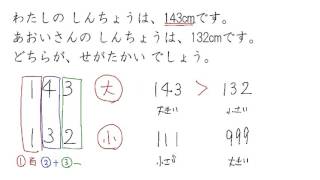 わたしの しんちょうは、143cmです。
あおいさんの しんちょうは、132cmです。
どちらが、せがたかい でしょう。
1 4 3 大 143 > 132
大きい 小さい
1 3 2 小 111 999
① 百 ② 十 ③ 一 小さい 大きい